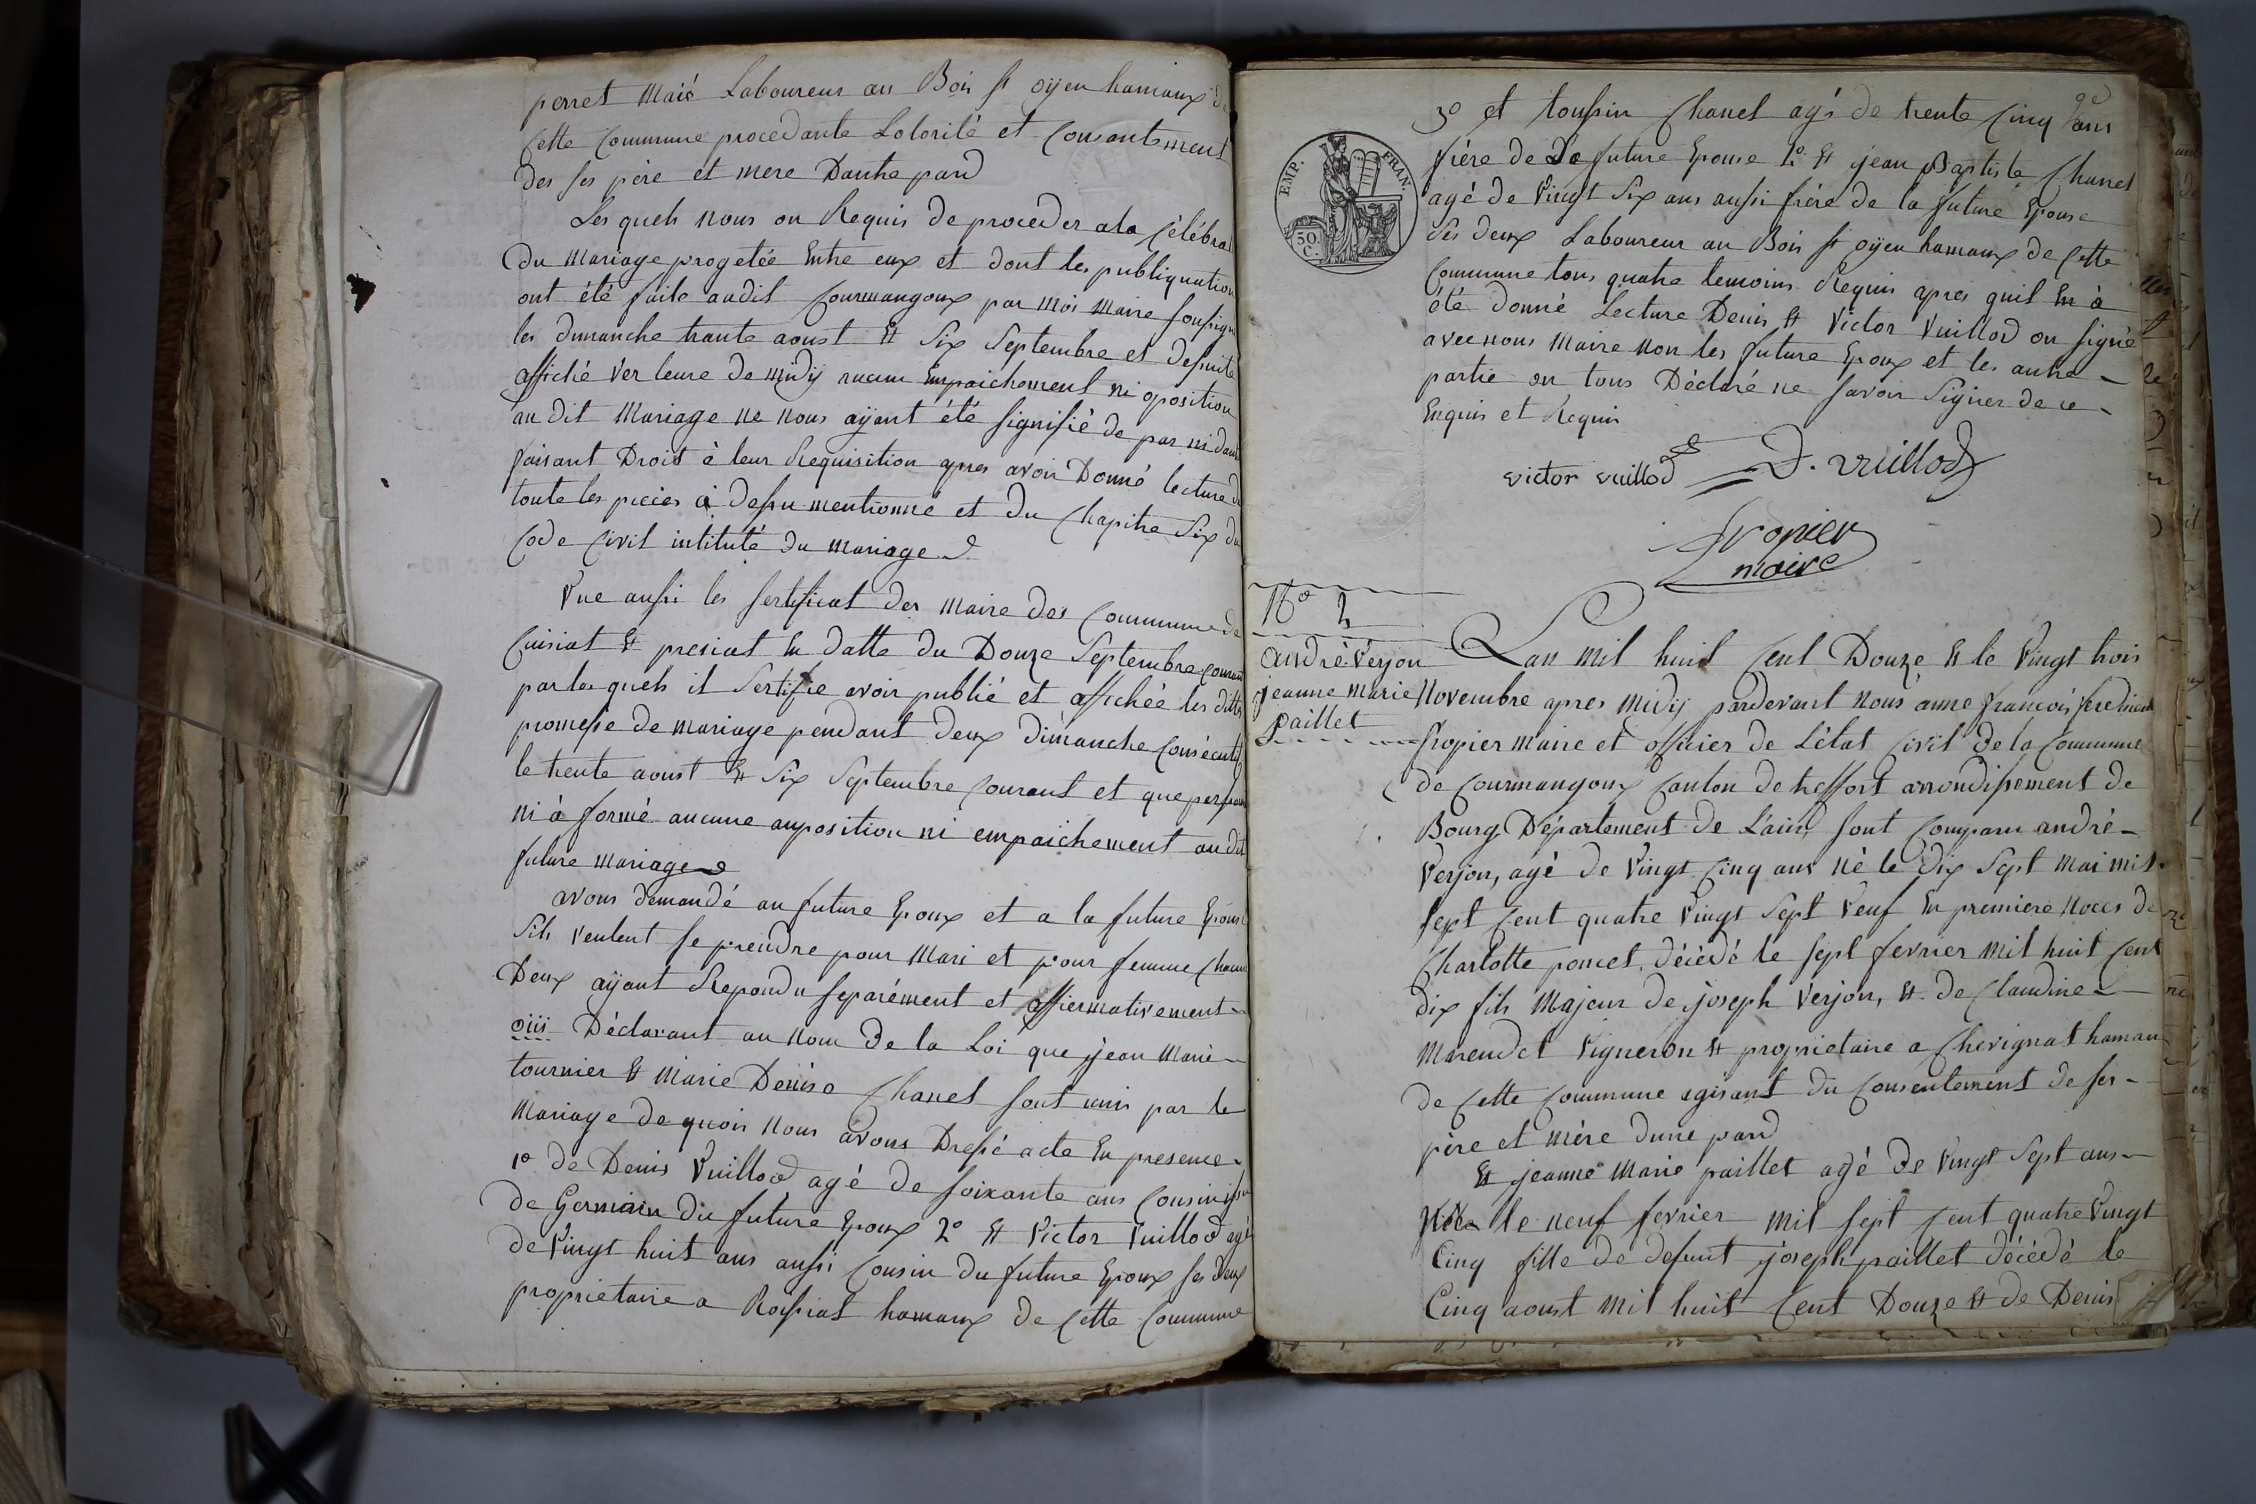 perret Marié Laboureur au Bois st oÿen hamaux de
Cette Commune procedante Lotorité et Consentement
des ses père et mere Dautre pard
Les quels nous on Requis de proceder ala Célébra
du Mariage progetée Entre eux et dont les publiquation
ont été faite audit Courmangoux par Moi Maire sousigné
les dimanche trante aoust Et Six Septembre et desuite
affiché ver leure de midÿ aucun Empaichement ni oposition
au dit Mariage ne nous aÿant été signifié de par ni dautre
faisant Droit à leur Requisition apres avoir Donné lecture de
toute les pieces ci desu mentionné et du Chapitre Six du
Code Civil intitulé du Mariage
Vue aussi les sertificat des Maire des Commune de
Cuisiat Et presiat En datte du Douze Septembre courant
par les quels il Sertifie avoir publié et affichée les dittes
promesse de mariage pendant deux dimanche Consécutif
le trente aoust Et Six Septembre Courant et que personne
ni à formé aucune auposition ni empaichement au dit
future mariage
avons demandé au future Epoux et a la future Epouse
Sils veulent se prendre pour Mari et pour femme Chacun
Deux aÿant Repondu separément et affiermativement
oüi Déclarant au nom de la Loi que jean Marie
tournier Et Marie Denise Chanel sont unis par le
Mariage de quoi nous avons Dressé acte En presence
1º de Denis Vuillod agé de soixante ans Cousin issu
de Germain du future Epoux 2º Et Victor Vuillod agé
de Vingt huit ans aussi Cousin du future Epoux ses deux
proprietaire a Roissiat hamaux de Cette Commune
3º et toussin Chanel agé de trente Cinq ans
frére de La future Epouse 4º Et jean Baptiste Chanel
agé de Vingt Six ans aussi frére de la future Epouse
Ses deux Laboureur au Bois st oÿen hamaux de Cette
Commune tous quatre temoins Requis apres quil En à
été donné Lecture Denis Et Victor Vuillod on signé
avec nous Maire non les future Epoux et les autre
partie on tous Déclaré ne savoir Signer de ce
Enquis et Requis
victor vuillod D. vuillod
fropier
maire
EMP. FRAN.
50.
C.
Nº 4
andré Verjon
jeanne marie
paillet
Lan mil huit Cent Douze Et le Vingt trois
Novembre apres Midÿ pardevant Nous anne francois ferdinand
fropier maire et officier de Létat Civil de la Commune
de Courmangoux Canton de treffort arrondissement de
Bourg Département de Lain, sont Comparu andré
Verjon, agé de Vingt Cinq ans né le dix Sept Mai mil
sept Cent quatre Vingt Sept Veuf En premiere noces de
Charlotte poncet, décédé le sept fevrier mil huit Cent
dix fils Majeur de joseph Verjon, Et de Claudine
Marendet Vigneron Et proprietaire a Chevignat hamau
de Cette Commune agisant du Consentement de ses
père et mére dune pard
Et jeanne Marie paillet agé de Vingt Sept ans
Née le neuf fevrier mil sept Cent quatre Vingt
Cinq fille de defunt joseph paillet décédé le
Cinq aoust mil huit Cent Douze Et de Denis